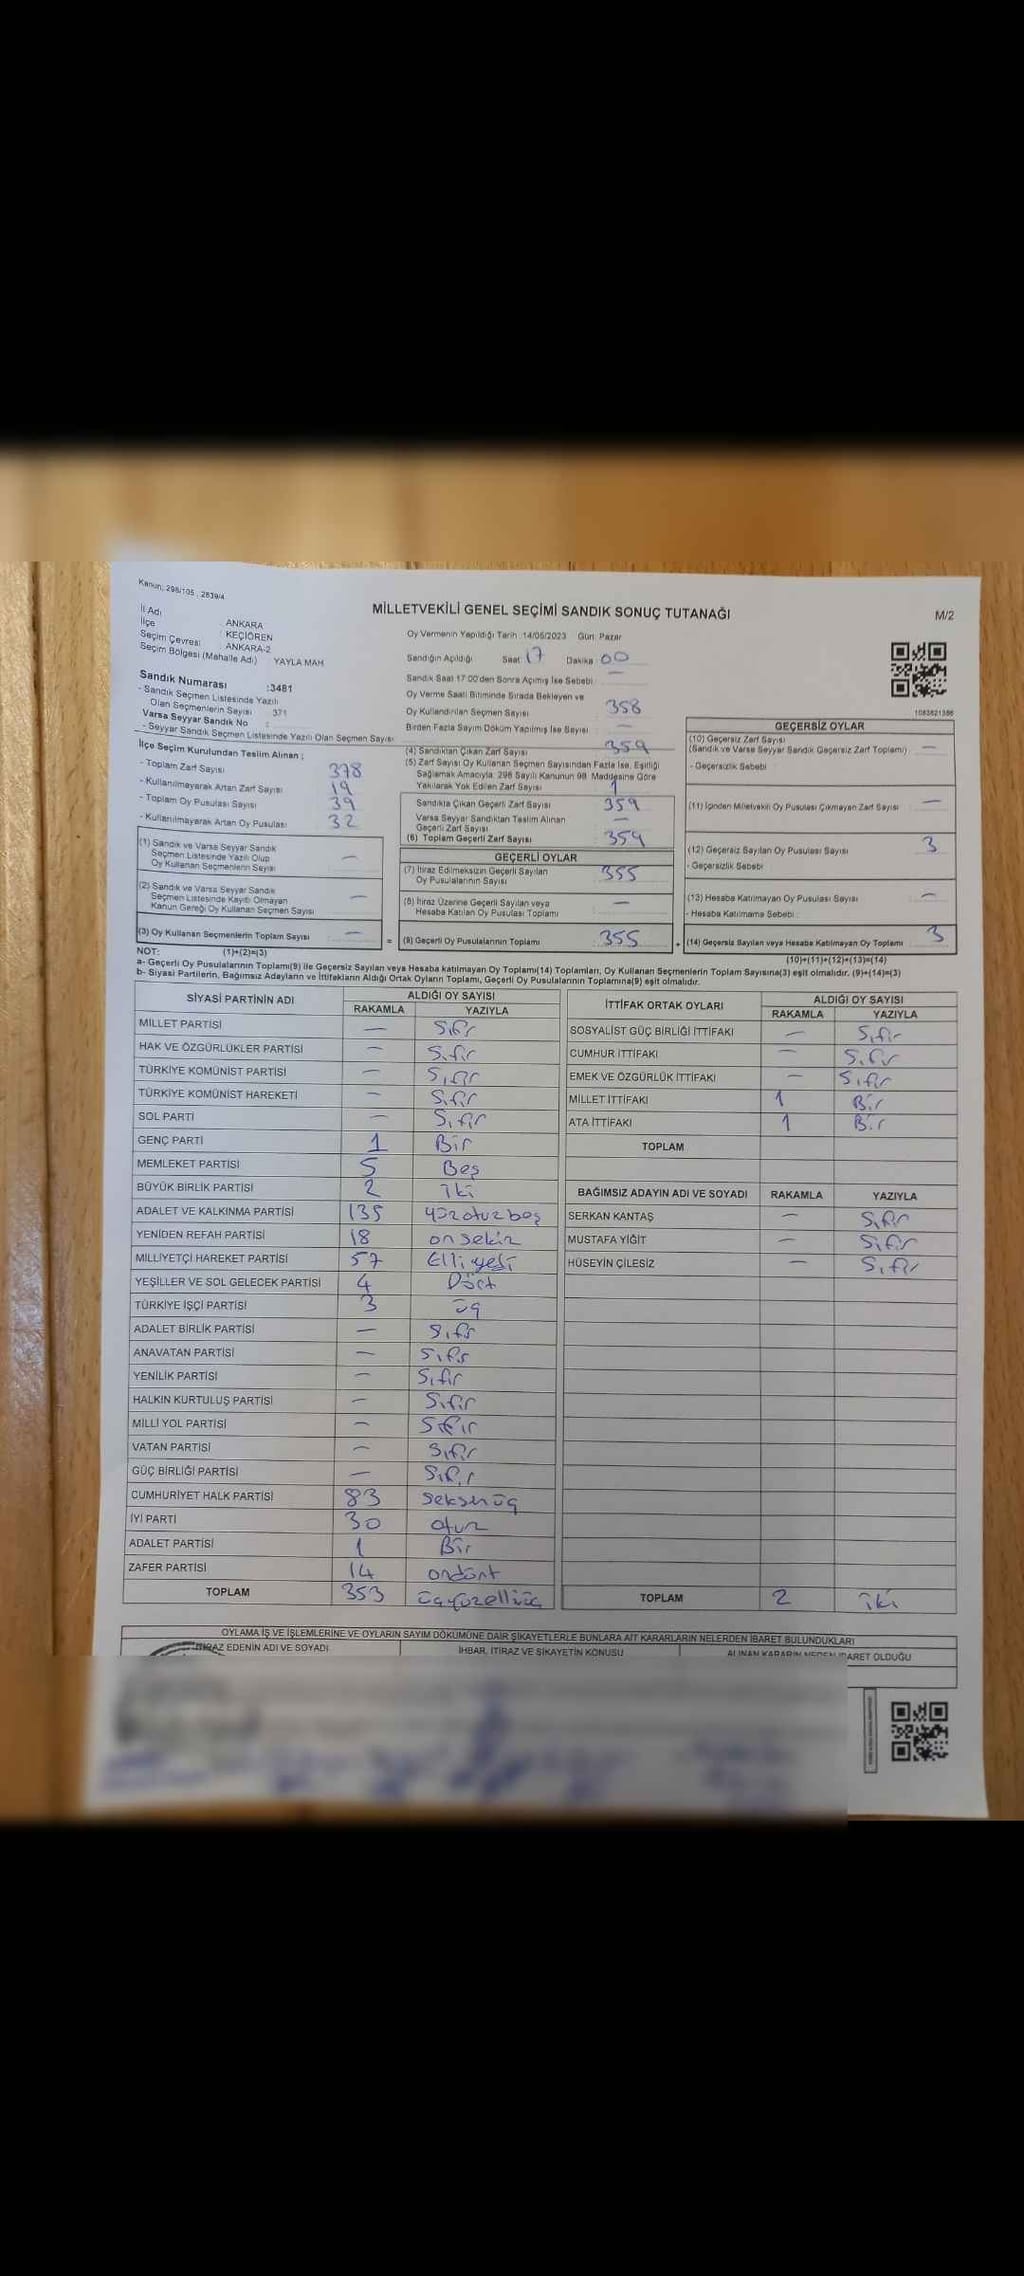 Kanun: 298/105, 2839/4
MİLLETVEKİLİ GENEL SEÇİMİ SANDIK SONUÇ TUTANAĞI
M/2
İl Adı : ANKARA
İlçe : KEÇİÖREN
Seçim Çevresi : ANKARA-2
Seçim Bölgesi (Mahalle Adı) YAYLA MAH
Oy Vermenin Yapıldığı Tarih :14/05/2023 Gün: Pazar
Sandığın Açıldığı Saat 17 Dakika 00
Sandık Saat 17:00'den Sonra Açılmış İse Sebebi
Oy Verme Saati Bitiminde Sırada Bekleyen ve
Oy Kullandırılan Seçmen Sayısı 358
Birden Fazla Sayım Döküm Yapılmış İse Sayısı —
1083621386
Sandık Numarası :3481
- Sandık Seçmen Listesinde Yazılı
Olan Seçmenlerin Sayısı : 371
Varsa Seyyar Sandık No :
- Seyyar Sandık Seçmen Listesinde Yazılı Olan Seçmen Sayısı
İlçe Seçim Kurulundan Teslim Alınan ;
- Toplam Zarf Sayısı 378
- Kullanılmayarak Artan Zarf Sayısı 19
- Toplam Oy Pusulası Sayısı 39
- Kullanılmayarak Artan Oy Pusulası 32
(1) Sandık ve Varsa Seyyar Sandık
Seçmen Listesinde Yazılı Olup
Oy Kullanan Seçmenlerin Sayısı —
(2) Sandık ve Varsa Seyyar Sandık
Seçmen Listesinde Kayıtlı Olmayan
Kanun Gereği Oy Kullanan Seçmen Sayısı —
(3) Oy Kullanan Seçmenlerin Toplam Sayısı —
(4) Sandıktan Çıkan Zarf Sayısı 359
(5) Zarf Sayısı Oy Kullanan Seçmen Sayısından Fazla İse, Eşitliği
Sağlamak Amacıyla, 298 Sayılı Kanunun 98. Maddesine Göre
Yakılarak Yok Edilen Zarf Sayısı 1
Sandıkta Çıkan Geçerli Zarf Sayısı 359
Varsa Seyyar Sandıktan Teslim Alınan
Geçerli Zarf Sayısı —
(6) Toplam Geçerli Zarf Sayısı 359
GEÇERLİ OYLAR
(7) İtiraz Edilmeksizin Geçerli Sayılan
Oy Pusulalarının Sayısı 355
(8) İtiraz Üzerine Geçerli Sayılan veya
Hesaba Katılan Oy Pusulası Toplamı —
= (9) Geçerli Oy Pusulalarının Toplamı 355
GEÇERSİZ OYLAR
(10) Geçersiz Zarf Sayısı
(Sandık ve Varsa Seyyar Sandık Geçersiz Zarf Toplamı) —
- Geçersizlik Sebebi
(11) İçinden Milletvekili Oy Pusulası Çıkmayan Zarf Sayısı —
(12) Geçersiz Sayılan Oy Pusulası Sayısı 3
- Geçersizlik Sebebi
(13) Hesaba Katılmayan Oy Pusulası Sayısı —
- Hesaba Katılmama Sebebi
+ (14) Geçersiz Sayılan veya Hesaba Katılmayan Oy Toplamı 3
NOT: (1)+(2)=(3) (10)+(11)+(12)+(13)=(14)
a- Geçerli Oy Pusulalarının Toplamı(9) ile Geçersiz Sayılan veya Hesaba katılmayan Oy Toplamı(14) Toplamları, Oy Kullanan Seçmenlerin Toplam Sayısına(3) eşit olmalıdır. (9)+(14)=(3)
b- Siyasi Partilerin, Bağımsız Adayların ve İttifakların Aldığı Ortak Oyların Toplamı, Geçerli Oy Pusulalarının Toplamına(9) eşit olmalıdır.
SİYASİ PARTİNİN ADI ALDIĞI OY SAYISI
RAKAMLA YAZIYLA
MİLLET PARTİSİ — Sıfır
HAK VE ÖZGÜRLÜKLER PARTİSİ — Sıfır
TÜRKİYE KOMÜNİST PARTİSİ — Sıfır
TÜRKİYE KOMÜNİST HAREKETİ — Sıfır
SOL PARTİ — Sıfır
GENÇ PARTİ 1 Bir
MEMLEKET PARTİSİ 5 Beş
BÜYÜK BİRLİK PARTİSİ 2 iki
ADALET VE KALKINMA PARTİSİ 135 yüzotuzbeş
YENİDEN REFAH PARTİSİ 18 onsekiz
MİLLİYETÇİ HAREKET PARTİSİ 57 Elli yedi
YEŞİLLER VE SOL GELECEK PARTİSİ 4 Dört
TÜRKİYE İŞÇİ PARTİSİ 3 üç
ADALET BİRLİK PARTİSİ — Sıfır
ANAVATAN PARTİSİ — Sıfır
YENİLİK PARTİSİ — Sıfır
HALKIN KURTULUŞ PARTİSİ — Sıfır
MİLLİ YOL PARTİSİ — Sıfır
VATAN PARTİSİ — Sıfır
GÜÇ BİRLİĞİ PARTİSİ — Sıfır
CUMHURİYET HALK PARTİSİ 83 seksenüç
İYİ PARTİ 30 otuz
ADALET PARTİSİ 1 Bir
ZAFER PARTİSİ 14 ondört
TOPLAM 353 üçyüzelliüç
İTTİFAK ORTAK OYLARI ALDIĞI OY SAYISI
RAKAMLA YAZIYLA
SOSYALİST GÜÇ BİRLİĞİ İTTİFAKI — Sıfır
CUMHUR İTTİFAKI — Sıfır
EMEK VE ÖZGÜRLÜK İTTİFAKI — Sıfır
MİLLET İTTİFAKI 1 Bir
ATA İTTİFAKI 1 Bir
TOPLAM
BAĞIMSIZ ADAYIN ADI VE SOYADI RAKAMLA YAZIYLA
SERKAN KANTAŞ — Sıfır
MUSTAFA YİĞİT — Sıfır
HÜSEYİN ÇİLESİZ — Sıfır
TOPLAM 2 iki
OYLAMA İŞ VE İŞLEMLERİNE VE OYLARIN SAYIM DÖKÜMÜNE DAİR ŞİKAYETLERLE BUNLARA AİT KARARLARIN NELERDEN İBARET BULUNDUKLARI
İTİRAZ EDENİN ADI VE SOYADI İHBAR, İTİRAZ VE ŞİKAYETİN KONUSU ALINAN KARARIN NEDEN İBARET OLDUĞU